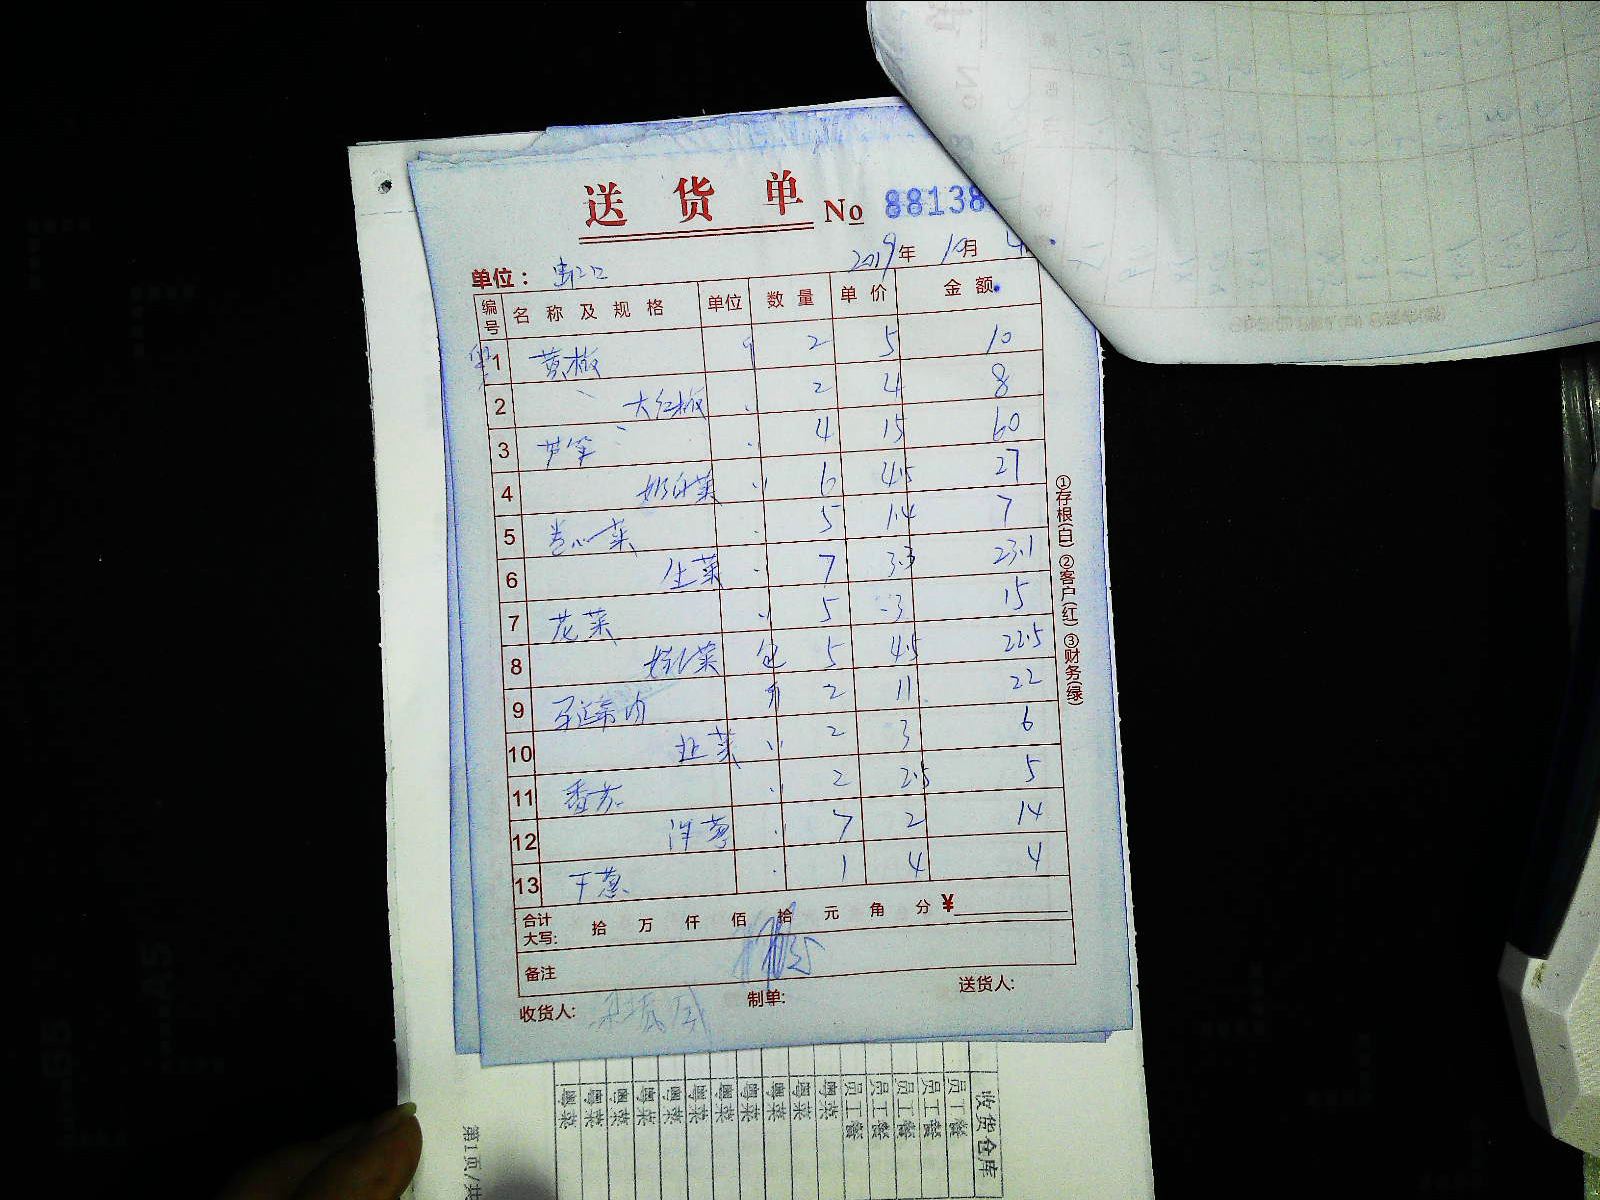 送 货 单 No 88138
2019年 10月 4
单位：
编号 名 称 及 规 格 单位 数 量 单 价 金 额
1 黄椒 2 5 10
2 大红椒 2 4 8
3 芦笋 4 15 60
4 奶白菜 6 4.5 27
5 卷心菜 5 1.4 7
6 生菜 7 3.3 23.1
7 花菜 5 3 15
8 娃娃菜 包 5 4.5 22.5
9 2 11 22
10 韭菜 2 3 6
11 香芹 2 2.5 5
12 洋葱 7 2 14
13 干葱 1 4 4
合计大写: 拾 万 仟 佰 拾 元 角 分 ¥
备注
收货人: 制单: 送货人:
①存根(白) ②客户(红) ③财务(绿)
收货仓库
员工餐
员工餐
员工餐
员工餐
员工餐
粤菜
粤菜
粤菜
粤菜
粤菜
粤菜
粤菜
粤菜
粤菜
粤菜
粤菜
第1页/共